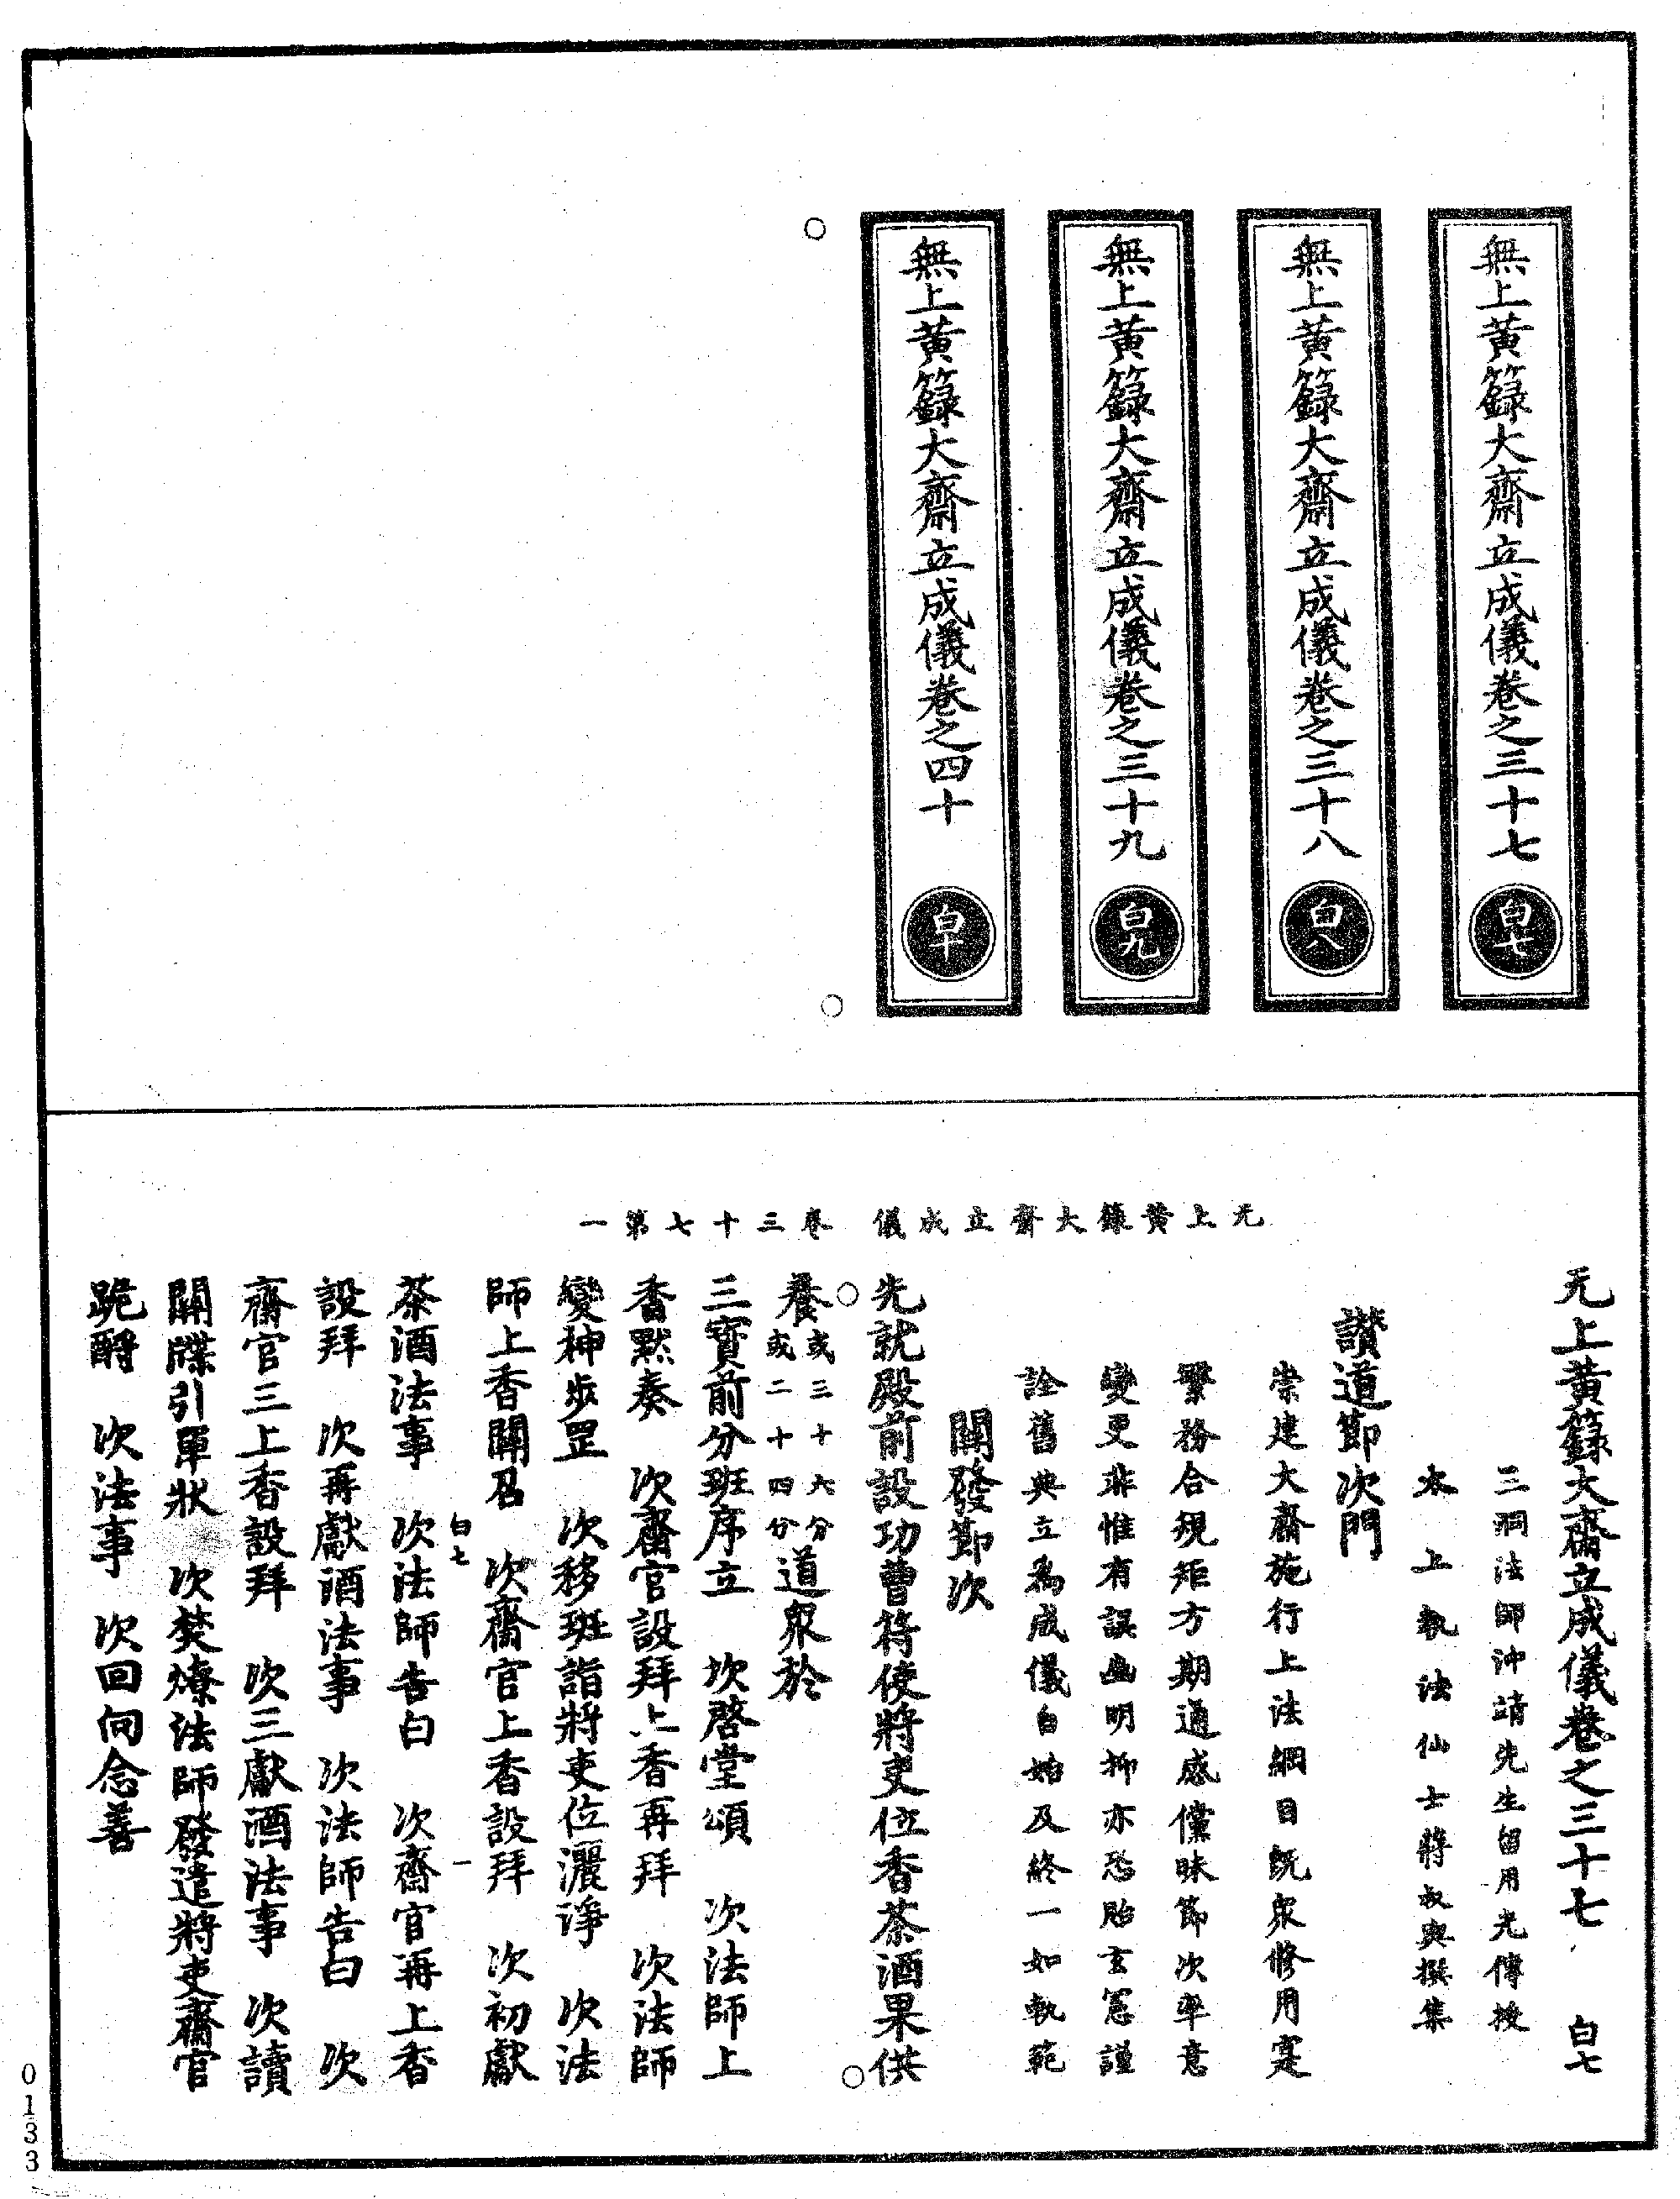 無上黃籙大齋立成儀卷之三十七 白七
無上黃籙大齋立成儀卷之三十八 白八
無上黃籙大齋立成儀卷之三十九 白九
無上黃籙大齋立成儀卷之四十 白十
无上黃籙大齋立成儀 卷三十七第一
无上黃籙大齋立成儀卷之三十七 白七
三洞法師沖靖先生留用光傳授
太上執法仙士蔣叔輿撰集
讚道節次門
崇建大齋施行上法綱目既衆修用寔
繁務合規矩方期通感儻昧節次率意
變更非惟有誤幽明抑亦恐貽玄憲謹
詮舊典立爲成儀自始及終一如軌範
關發節次
先就殿前設功曹符使將吏位香茶酒果供
養或三十六分或二十四分道衆於
三寶前分班序立 次啓堂頌 次法師上
香默奏 次齋官設拜上香再拜 次法師
變神步罡 次移班詣將吏位灑淨 次法
師上香關召 次齋官上香設拜 次初獻
白七 一
茶酒法事 次法師告白 次齋官再上香
設拜 次再獻酒法事 次法師告白 次
齋官三上香設拜 次三獻酒法事 次讀
關牒引單狀 次焚燎法師發遣將吏齋官
跪酹 次法事 次回向念善
0133